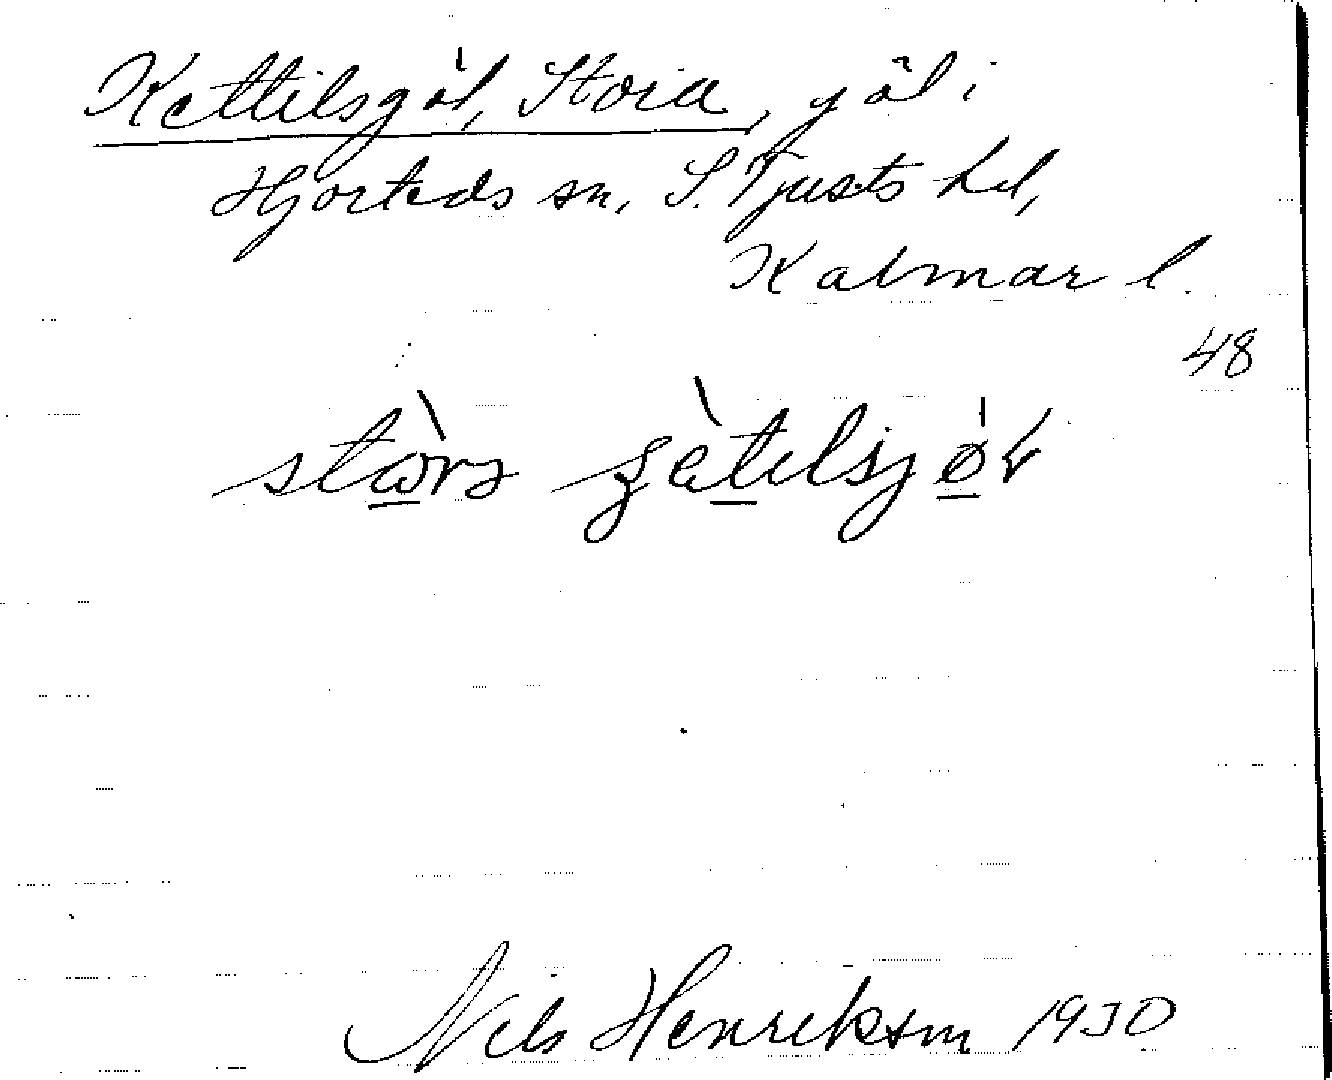 Kettilsgöl, Stora, göl i
Hjorteds sn, S. Tjusts hd,
Kalmar l.
48
Nils Henriksson 1930